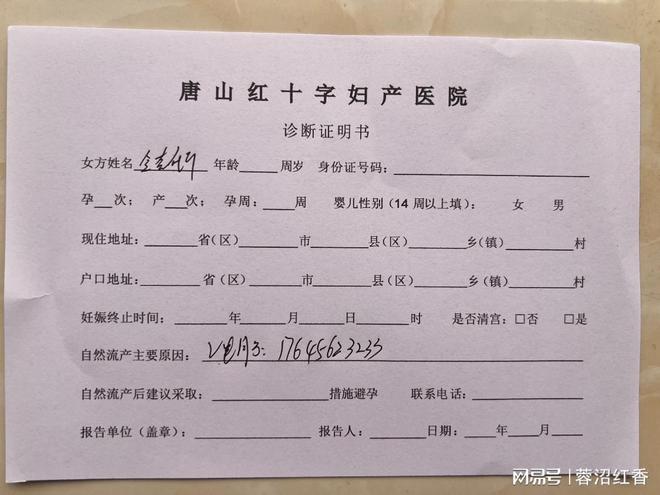 唐山红十字妇产医院
诊断证明书
女方姓名______年龄____周岁 身份证号码:______
孕__次; 产__次; 孕周:____周 婴儿性别(14周以上填): 女 男
现住地址:______省(区)______市______县(区)______乡(镇)______村
户口地址:______省(区)______市______县(区)______乡(镇)______村
妊娠终止时间:______年______月______日______时 是否清宫:□否 □是
自然流产主要原因: 17645623233
自然流产后建议采取:______措施避孕 联系电话:______
报告单位(盖章):______报告人:______日期:____年____月
网易号 | 蓉沼红香